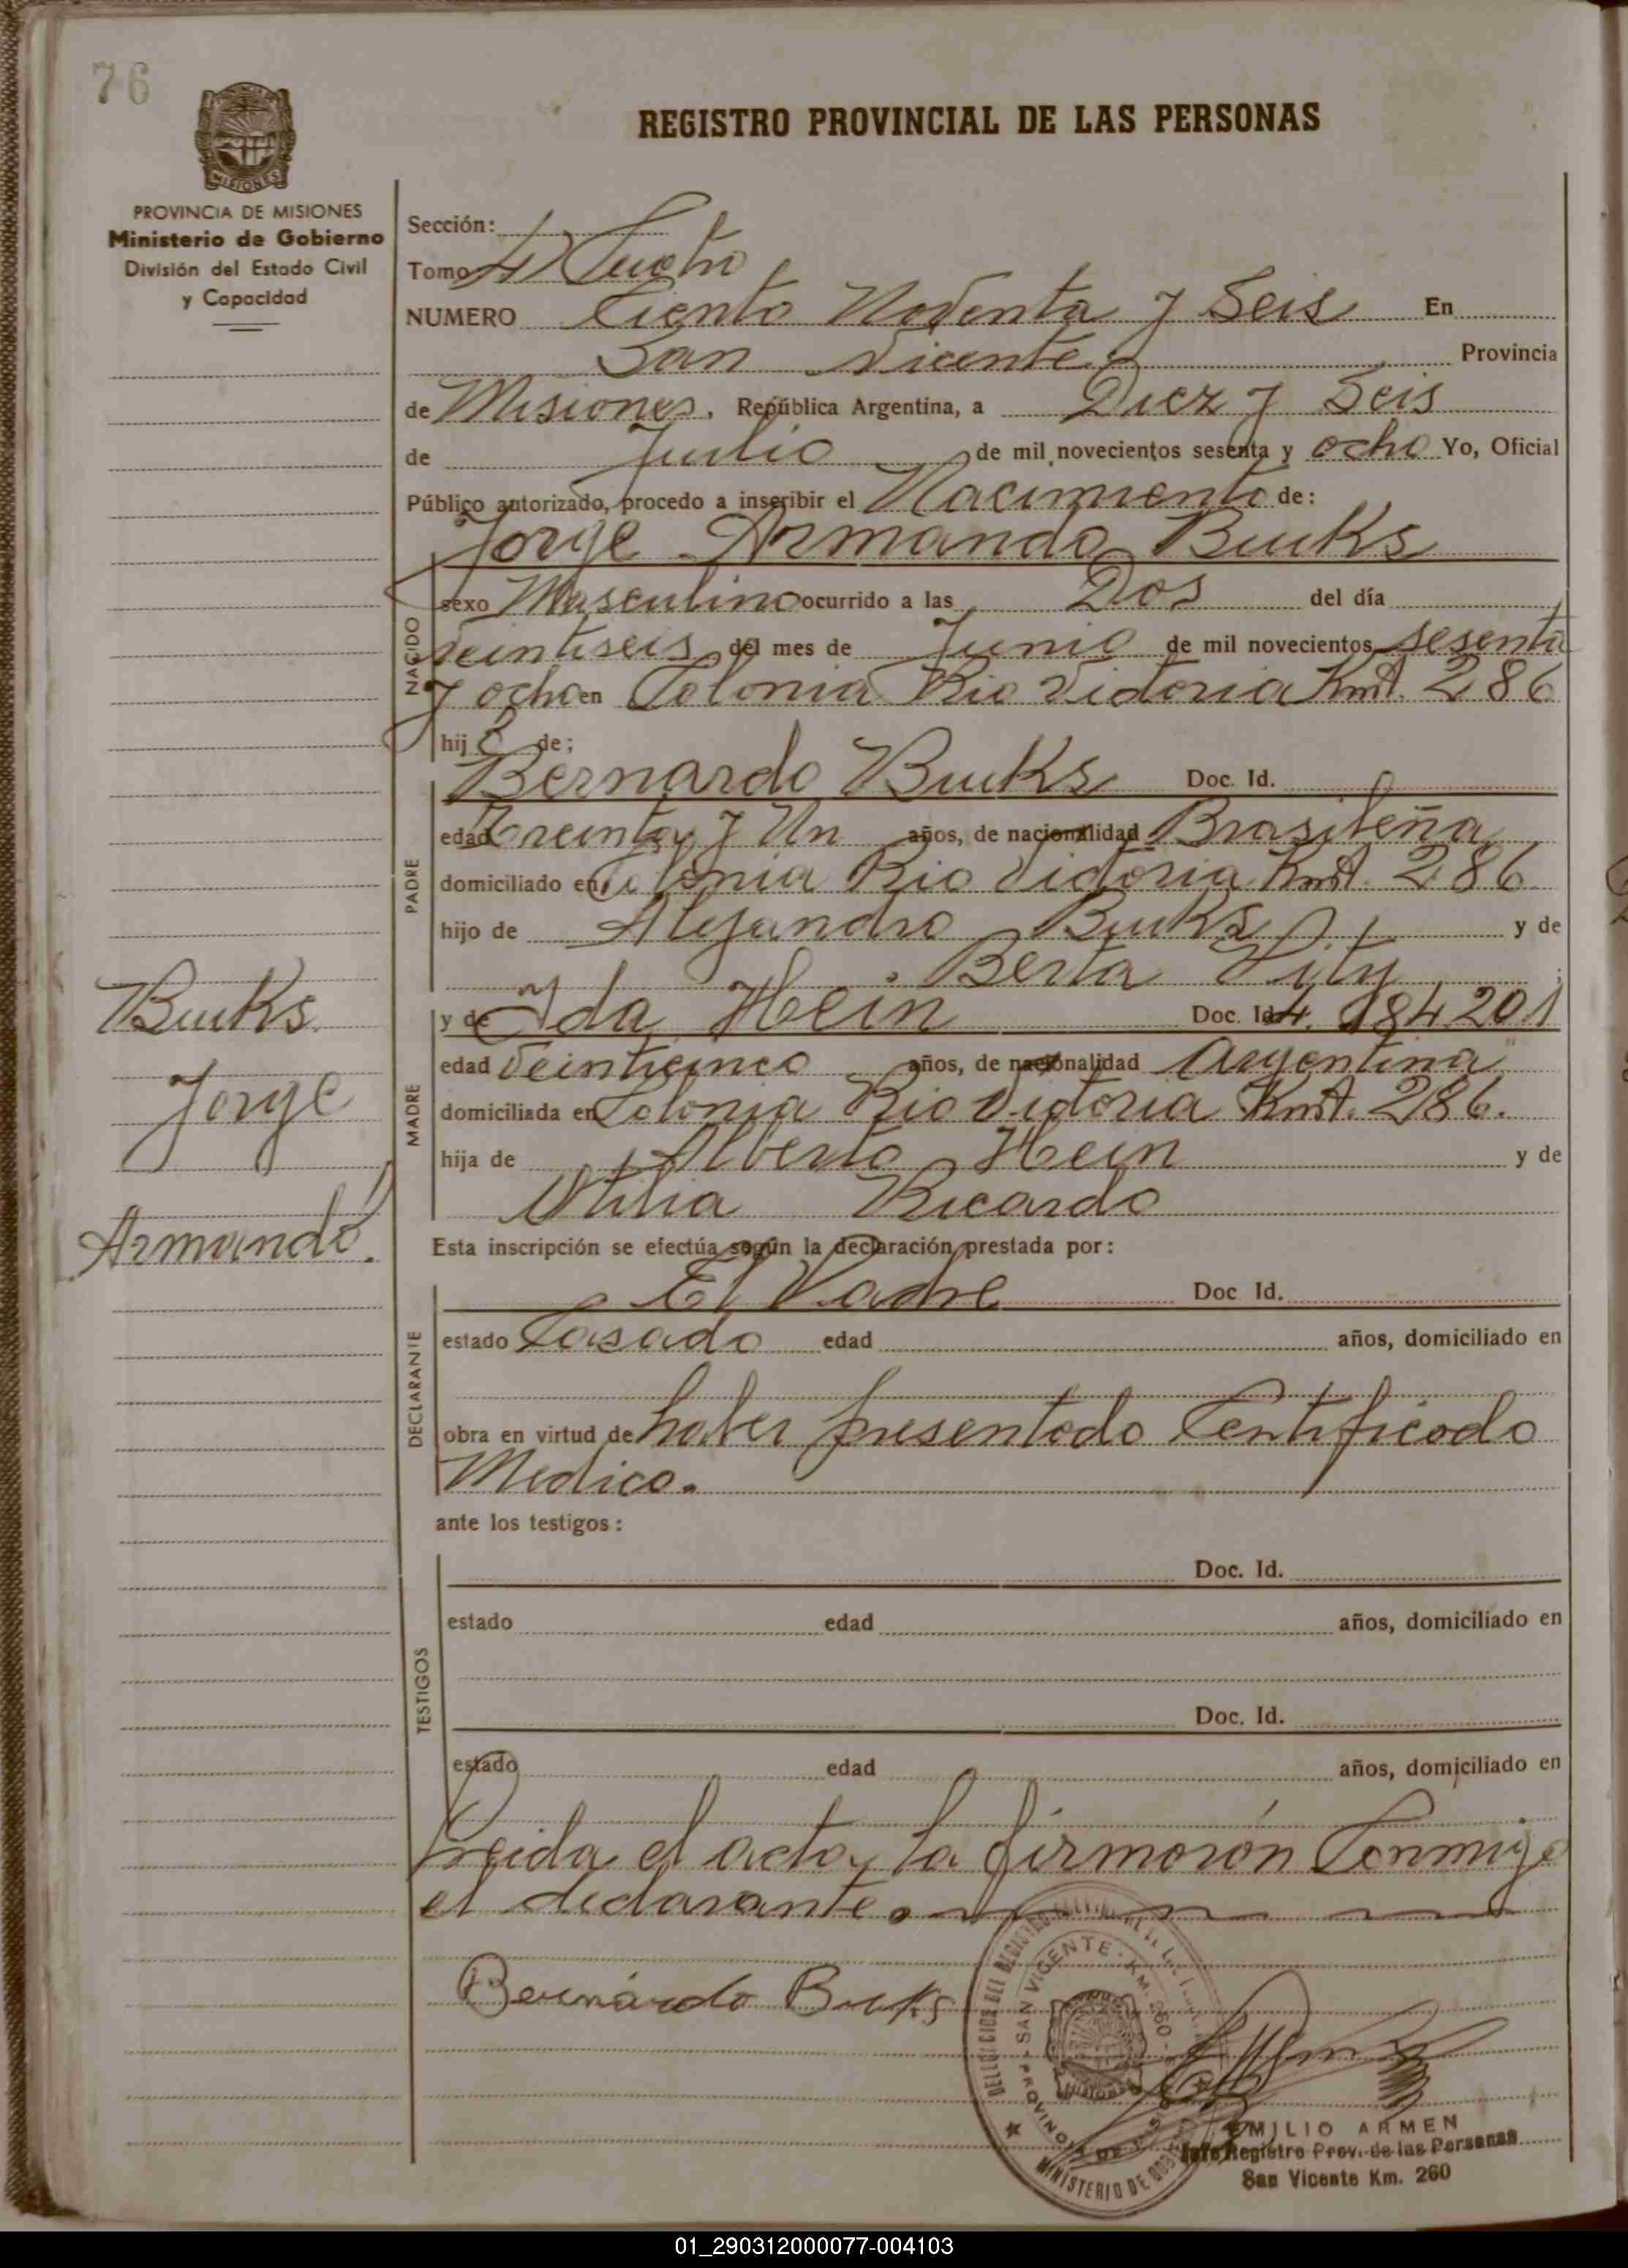 76
REGISTRO PROVINCIAL DE LAS PERSONAS
MISIONES
PROVINCIA DE MISIONES
Ministerio de Gobierno
División del Estado Civil
y Capacidad
Sección:
Tomo
NUMERO Ciento Noventa y Seis En
San Vicente Provincia
de Misiones. República Argentina, a Diez y Seis
de Julio de mil novecientos sesenta y ocho Yo, Oficial
Público autorizado, procedo a inscribir el Nacimiento de:
Jorge Armando Buuks
NACIDO
sexo Masculino ocurrido a las Dos del día
veintiseis del mes de Junio de mil novecientos sesenta
y ocho en Colonia Rio Victoria Kmt. 286
hijo de;
PADRE
Bernardo Buuks Doc. Id.
edad Treinta y Un años, de nacionalidad Brasileña
domiciliado en Colonia Rio Victoria Kmt. 286
hijo de Alejandro Buuks y de
Berta
MADRE
y de Ida Hein Doc. Id 4. 184201
edad Veinticinco años, de nacionalidad Argentina
domiciliada en Colonia Rio Victoria Kmt. 286.
hija de Alberto Hein y de
Otilia Ricardo
Buuks
Jorge
Armando.
Esta inscripción se efectúa según la declaración prestada por:
DECLARANTE
El Padre Doc Id.
estado Casado edad años, domiciliado en
obra en virtud de haber presentado Certificado
Medico.
ante los testigos:
TESTIGOS
Doc. Id.
estado edad años, domiciliado en
Doc. Id.
estado edad años, domiciliado en
Leida el acta, la firmarón Conmigo
el declarante.
Bernárdo Buks
SAN VICENTE - KM. 260
PROVINCIA DE
MISIONES
MINISTERIO DE
EMILIO ARMEN
Jefe Registro Prov. de las Personas
San Vicente Km. 260
01_290312000077-004103